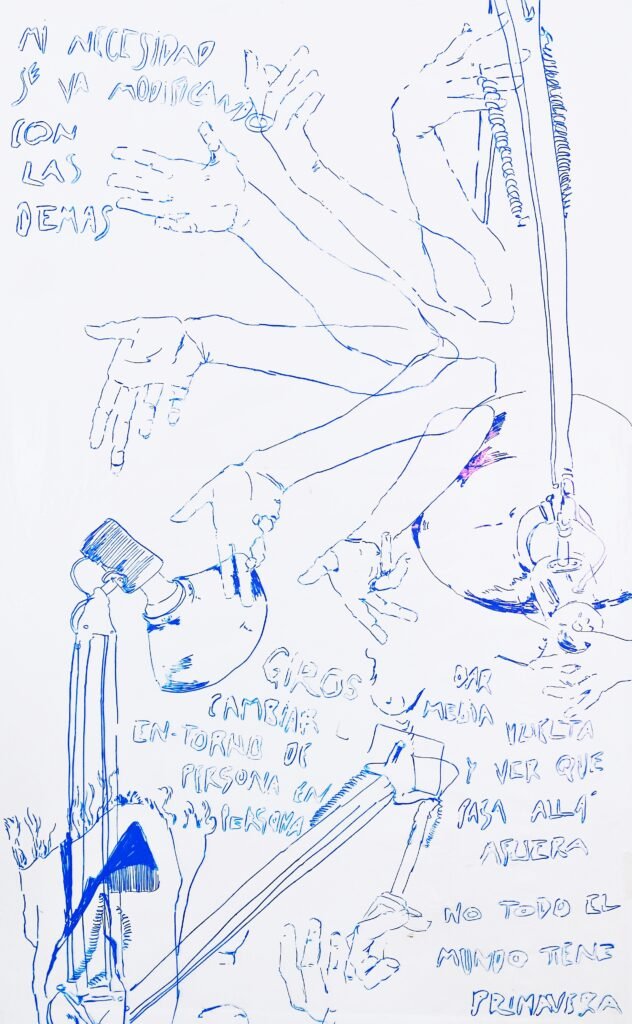 MI NECESIDAD
SE VA MODIFICANDO
CON
LAS
DEMAS
GIROS
CAMBIAR
EN-TORNO DE
PERSONA EN
PERSONA
DAR
MEDIA VUELTA
Y VER QUE
PASA ALLÁ
AFUERA
NO TODO EL
MUNDO TIENE
PRIMAVERA